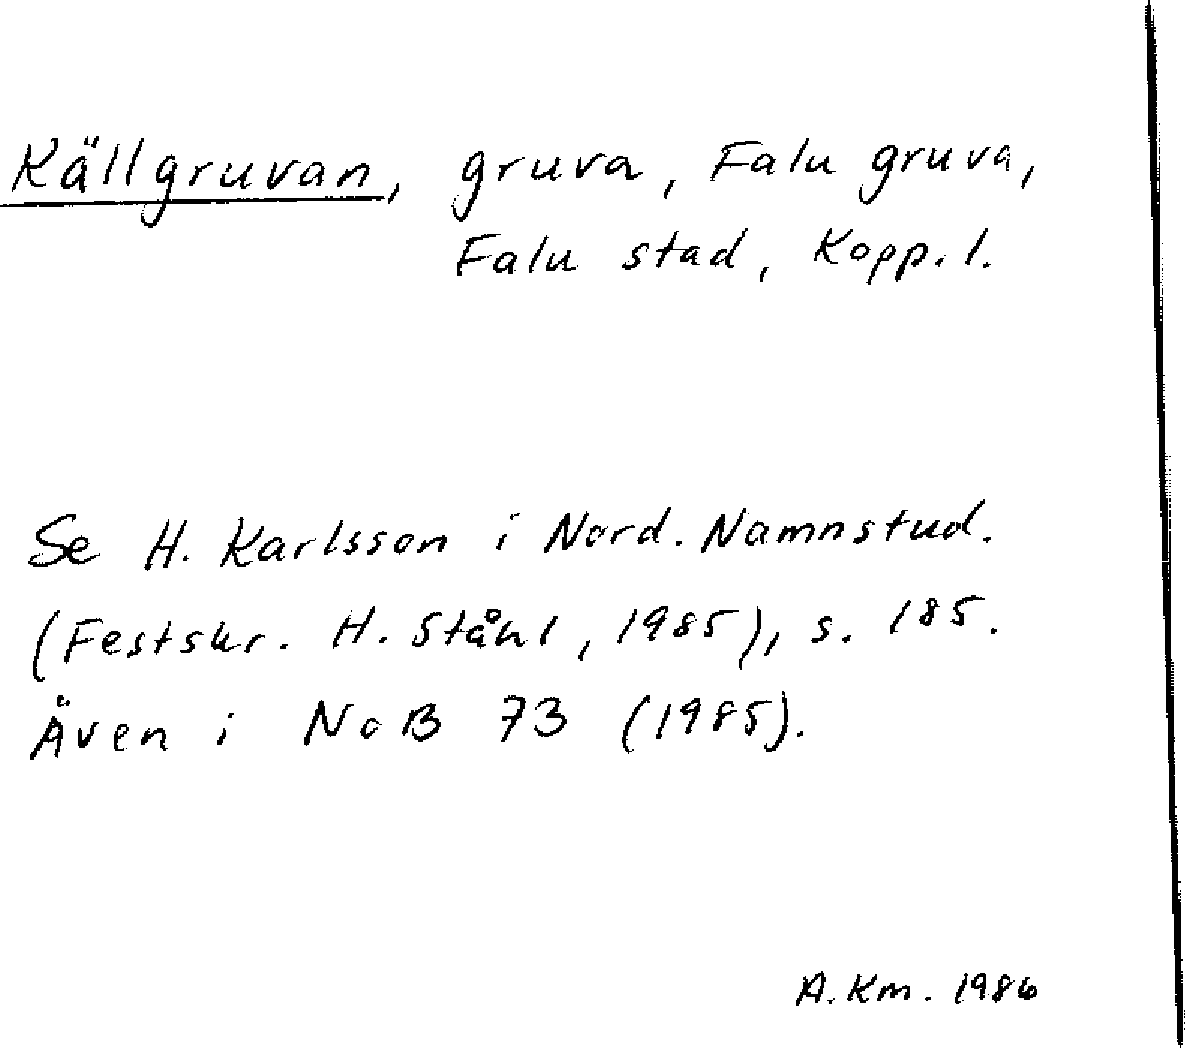 Källgruvan, gruva, Falu gruva,
Falu stad, Kopp. l.
Se H. Karlsson i Nord. Namnstud.
(Festskr. H. Ståhl, 1985), s. 185.
Även i NoB 73 (1985).
A. Km. 1986